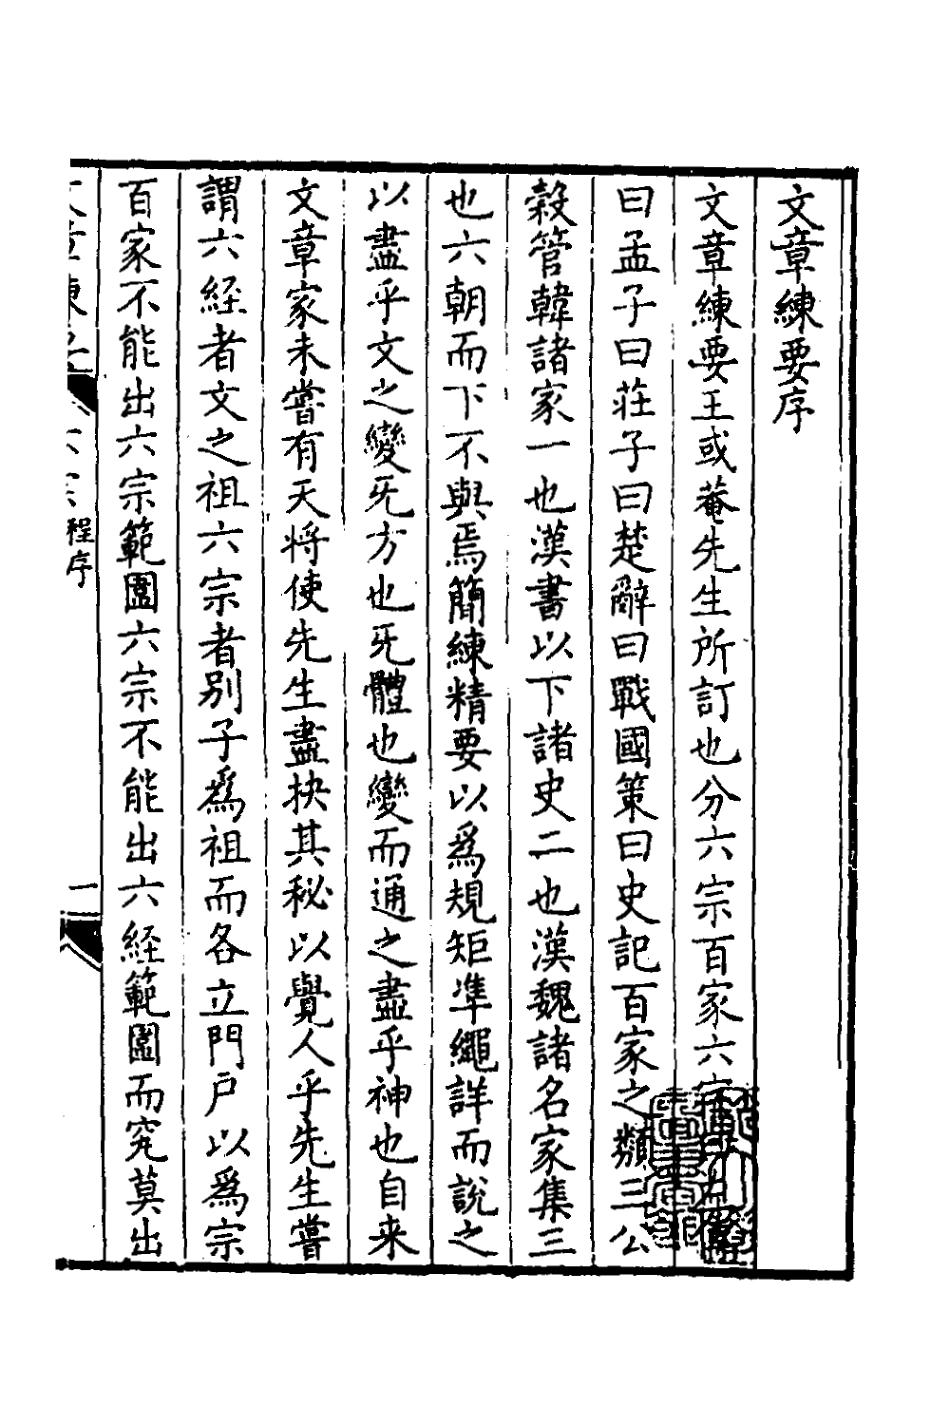 文章練要序
文章練要王或菴先生所訂也分六宗百家六宗左傳
曰孟子曰荘子曰楚辭曰戰國策曰史記百家之類三公
穀管韓諸家一也漢書以下諸史二也漢魏諸名家集三
也六朝而下不與焉簡練精要以爲規矩準繩詳而說之
以盡乎文之變旡方也旡體也變而通之盡乎神也自来
文章家未嘗有天将使先生盡抉其秘以覺人乎先生嘗
謂六経者文之祖六宗者別子爲祖而各立門户以爲宗
百家不能出六宗範圍六宗不能出六経範圍而究莫出
文章練要 六宗 程序 一